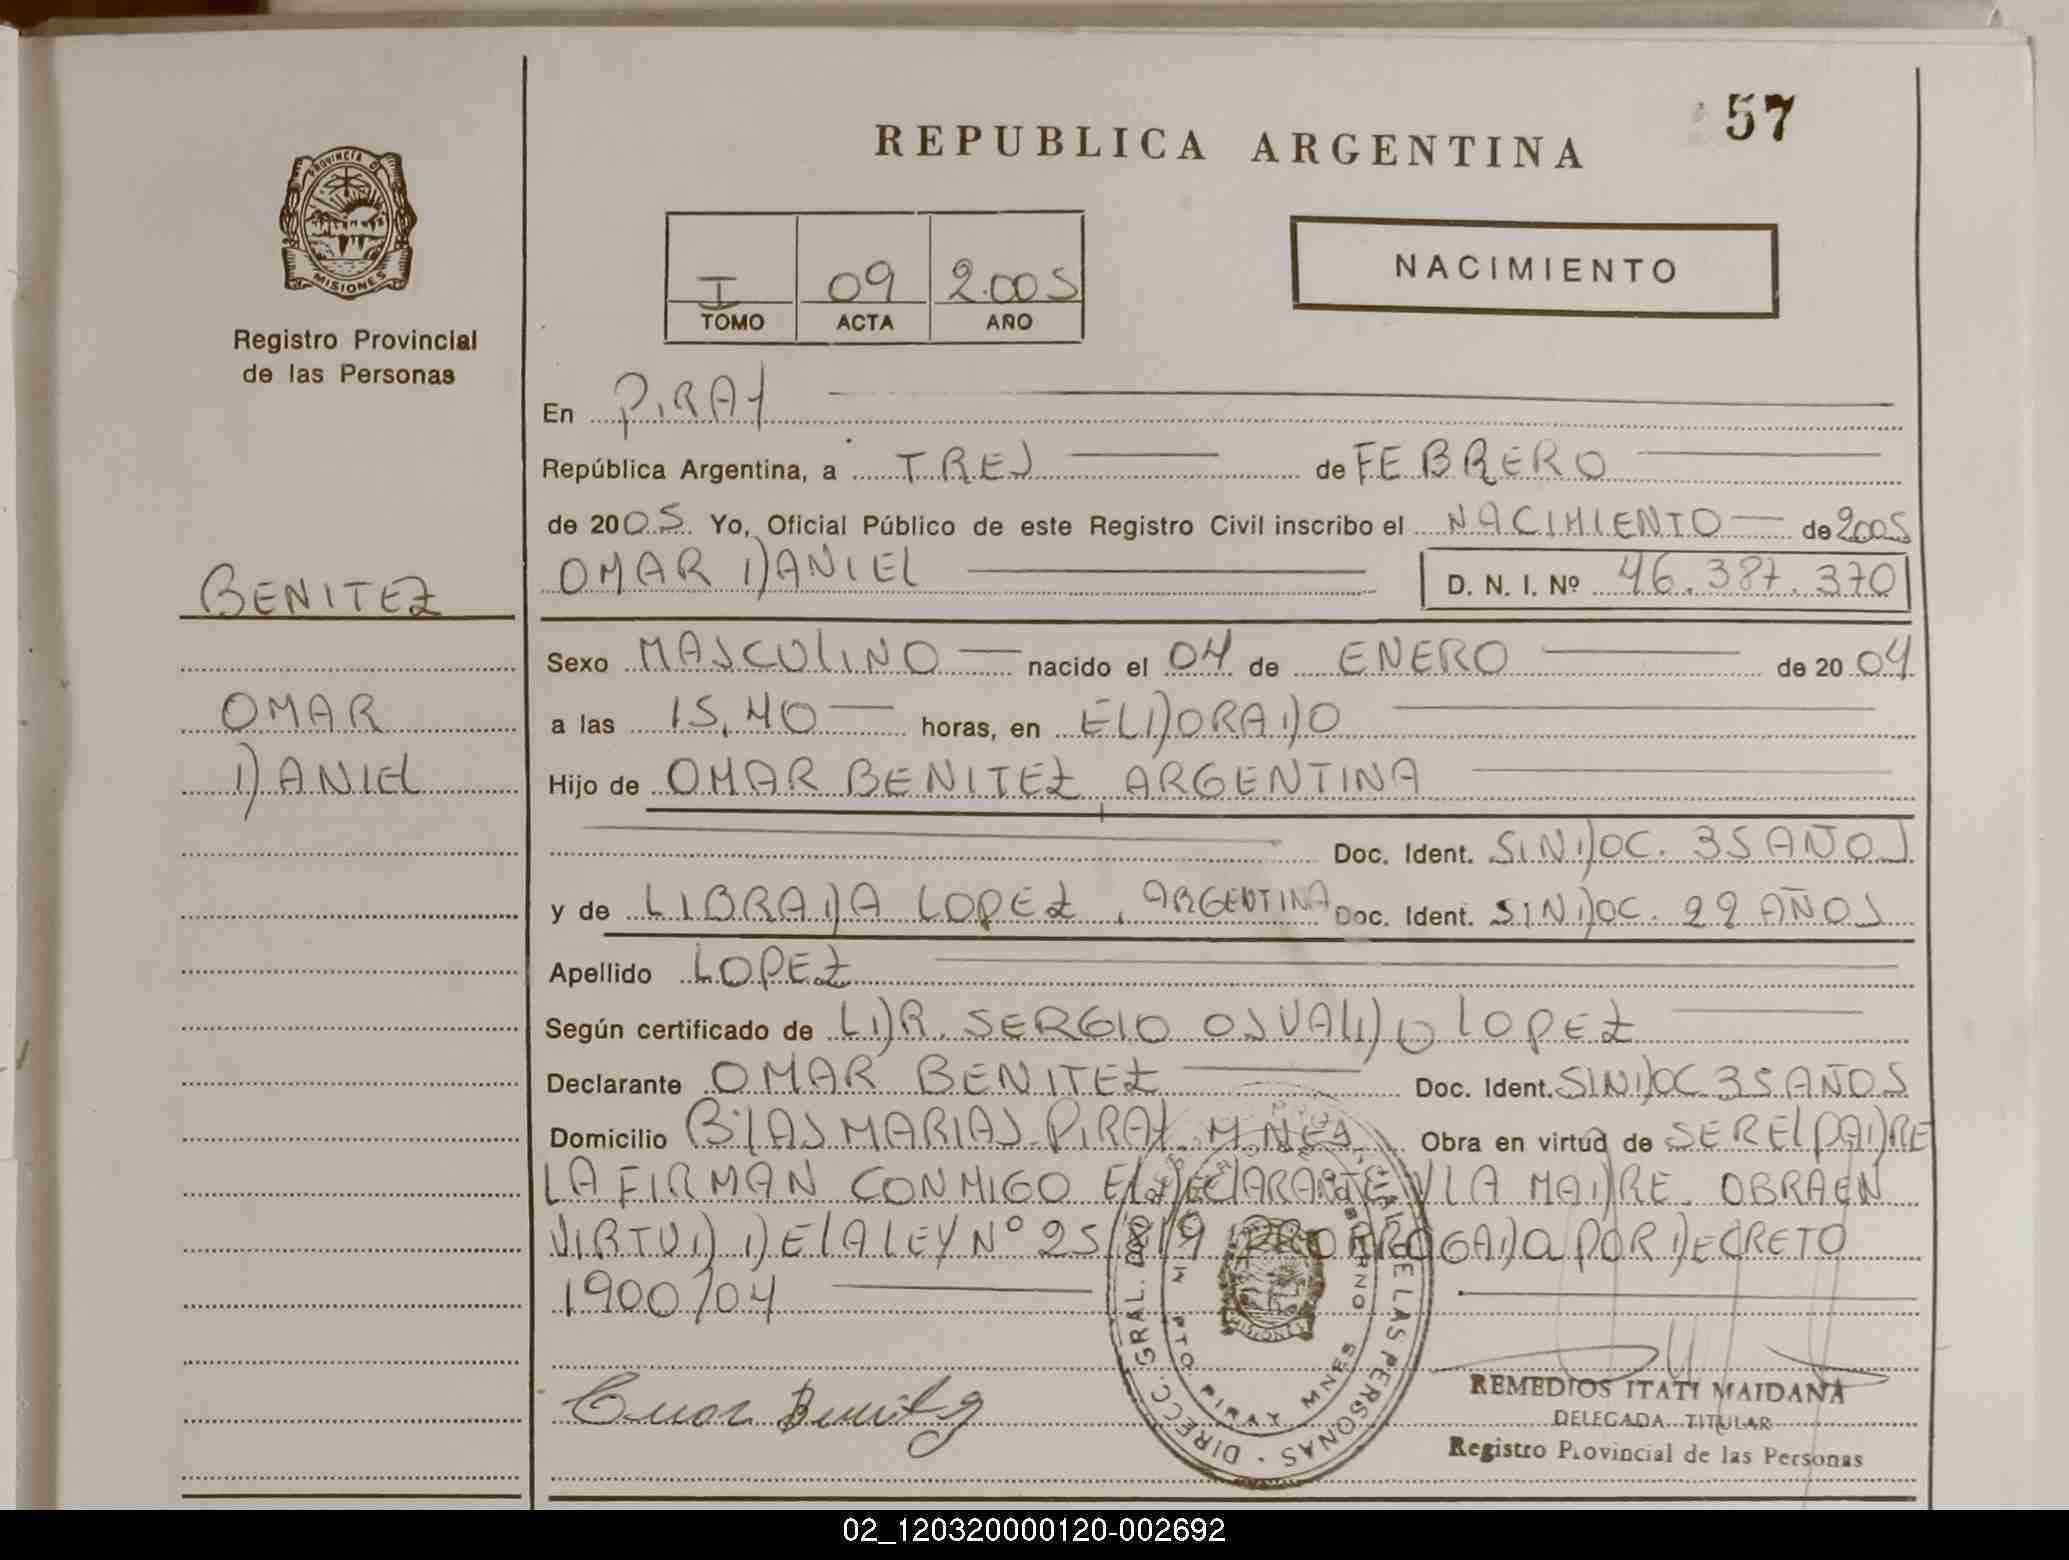 57
REPUBLICA ARGENTINA
PROVINCIA D
MISIONES
Registro Provincial
de las Personas
I 09 2.005
TOMO ACTA AÑO
NACIMIENTO
En PIRAY
República Argentina, a TRES de FEBRERO
de 2005 Yo, Oficial Público de este Registro Civil inscribo el NACIMIENTO de 2005
OMAR DANIEL D. N. I. Nº 46.387.370
BENITEZ
OMAR
DANIEL
Sexo MASCULINO nacido el 04 de ENERO de 2004
a las 15,40 horas, en ELDORADO
Hijo de OMAR BENITEZ, ARGENTINA
Doc. Ident. SIN DOC. 35 AÑOS
y de LIBRADA LOPEZ, ARGENTINA Doc. Ident. SIN DOC. 22 AÑOS
Apellido LOPEZ
Según certificado de LDR. SERGIO OSVALDO LOPEZ
Declarante OMAR BENITEZ Doc. Ident. SIN DOC 35 AÑOS
Domicilio Bº LAS MARIAS PIRAY MNES Obra en virtud de SER EL PADRE
LA FIRMAN CONMIGO EL DECLARANTE Y LA MADRE. OBRA EN
VIRTUD DE LA LEY Nº 25819 PRORROGADA POR DECRETO
1900/04
Omar Benitez
DIRECC. GRAL. DE LAS PERSONAS
PTO. PIRAY MNES
MISIONES
REMEDIOS ITATI MAIDANA
DELEGADA TITULAR
Registro Provincial de las Personas
02_120320000120-002692